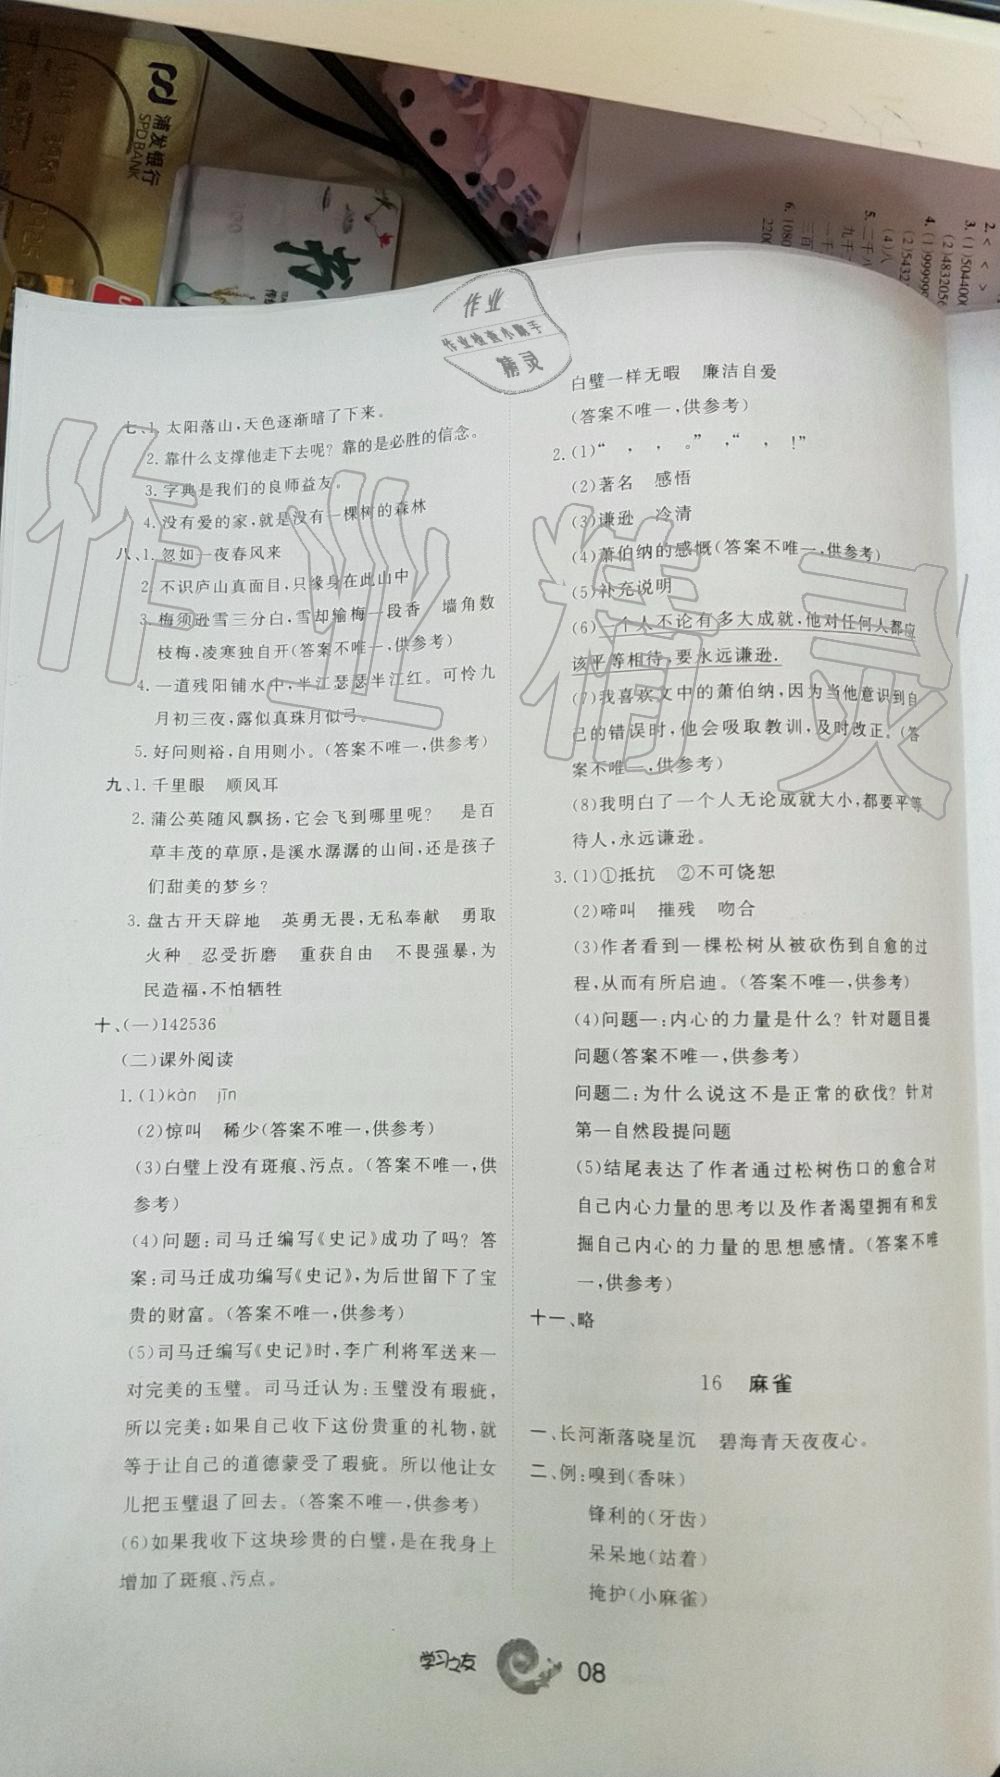 浦发银行
SPD BANK
2. < <
< >
3. (1)504400
(2)4832056
4. (1)999990
(2)5432
(4)八
5. 二千八
九千
一千
三百
6. 1080
2200
作业
作业检查小助手
精灵
七、1. 太阳落山,天色逐渐暗了下来。
2. 靠什么支撑他走下去呢？靠的是必胜的信念。
3. 字典是我们的良师益友。
4. 没有爱的家,就是没有一棵树的森林
八、1. 忽如一夜春风来
2. 不识庐山真面目,只缘身在此山中
3. 梅须逊雪三分白,雪却输梅一段香　墙角数
枝梅,凌寒独自开(答案不唯一,供参考)
4. 一道残阳铺水中,半江瑟瑟半江红。可怜九
月初三夜,露似真珠月似弓。
5. 好问则裕,自用则小。(答案不唯一,供参考)
九、1. 千里眼　顺风耳
2. 蒲公英随风飘扬,它会飞到哪里呢？　是百
草丰茂的草原,是溪水潺潺的山间,还是孩子
们甜美的梦乡?
3. 盘古开天辟地　英勇无畏,无私奉献　勇取
火种　忍受折磨　重获自由　不畏强暴,为
民造福,不怕牺牲
十、(一)142536
(二)课外阅读
1. (1)kàn　jīn
(2)惊叫　稀少(答案不唯一,供参考)
(3)白璧上没有斑痕、污点。(答案不唯一,供
参考)
(4)问题:司马迁编写《史记》成功了吗？答
案:司马迁成功编写《史记》,为后世留下了宝
贵的财富。(答案不唯一,供参考)
(5)司马迁编写《史记》时,李广利将军送来一
对完美的玉璧。司马迁认为:玉璧没有瑕疵,
所以完美;如果自己收下这份贵重的礼物,就
等于让自己的道德蒙受了瑕疵。所以他让女
儿把玉璧退了回去。(答案不唯一,供参考)
(6)如果我收下这块珍贵的白璧,是在我身上
增加了斑痕、污点。
白璧一样无暇　廉洁自爱
(答案不唯一,供参考)
2. (1)“　，　，　。”　，“　，　！”
(2)著名　感悟
(3)谦逊　冷清
(4)萧伯纳的感慨(答案不唯一,供参考)
(5)补充说明
(6)一个人不论有多大成就,他对任何人都应
该平等相待,要永远谦逊.
(7)我喜欢文中的萧伯纳,因为当他意识到自
己的错误时,他会吸取教训,及时改正。(答
案不唯一,供参考)
(8)我明白了一个人无论成就大小,都要平等
待人,永远谦逊。
3. (1)①抵抗　②不可饶恕
(2)啼叫　摧残　吻合
(3)作者看到一棵松树从被砍伤到自愈的过
程,从而有所启迪。(答案不唯一,供参考)
(4)问题一:内心的力量是什么？针对题目提
问题(答案不唯一,供参考)
问题二:为什么说这不是正常的砍伐？针对
第一自然段提问题
(5)结尾表达了作者通过松树伤口的愈合对
自己内心力量的思考以及作者渴望拥有和发
掘自己内心的力量的思想感情。(答案不唯
一,供参考)
十一、略
16　麻雀
一、长河渐落晓星沉　碧海青天夜夜心。
二、例:嗅到(香味)
锋利的(牙齿)
呆呆地(站着)
掩护(小麻雀)
学习之友
08
作业精灵